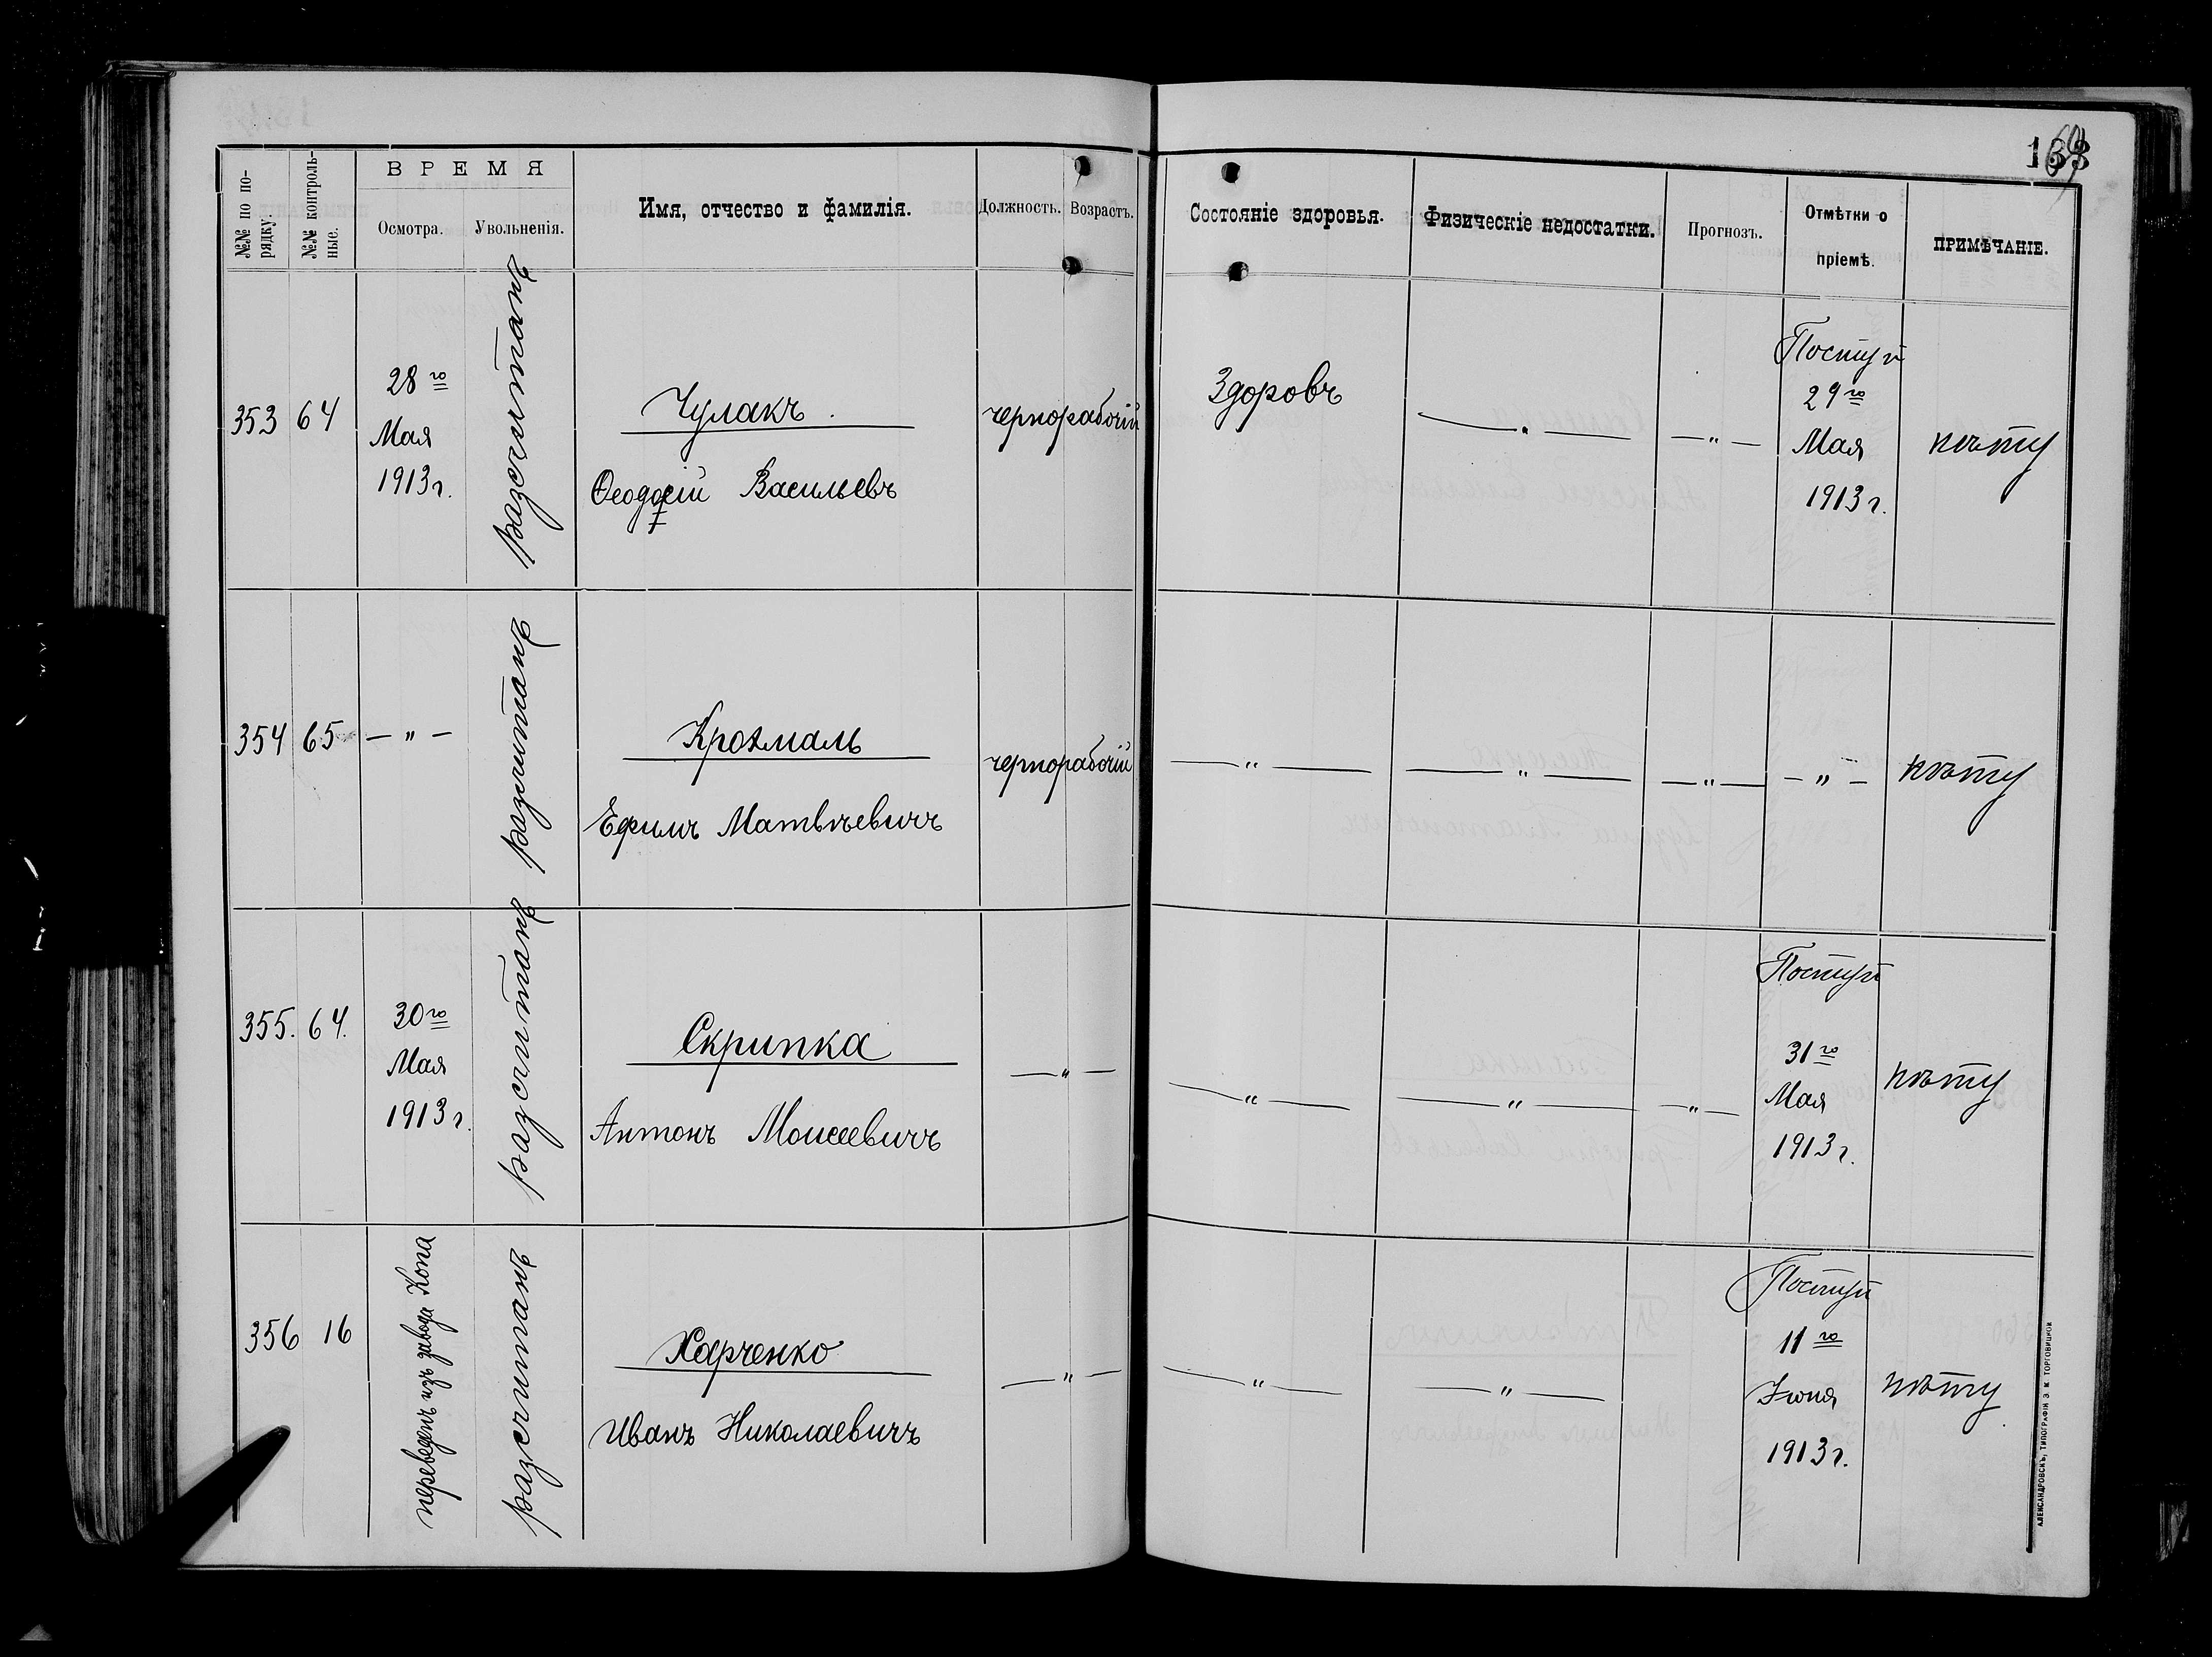 №№ по порядку.
№№ контрольные.
ВРЕМЯ
Осмотра.
Увольненія.
Имя, отчество и фамилія.
Должность.
Возрастъ.
Состояніе здоровья.
Физическіе недостатки.
Прогнозъ.
Отмѣтки о
пріемѣ.
ПРИМѢЧАНІЕ.
353
64
28го
Мая
1913 г.
разсчитанъ
Чулакъ.
Ѳеодосій Васильевъ
чернорабочій
Здоровъ
— " —
— " —
Поступ
29го
Мая
1913 г.
нѣту
354
65
— " —
разчитанъ
Крохмаль
Ефимъ Матвѣевичъ
чернорабочій
— " —
— " —
— " —
— " —
нѣту
355.
64.
30го
Мая
1913 г.
разсчитанъ
Скрипка
Антонъ Моисеевичъ
— " —
— " —
— " —
— " —
Поступ
31го
Мая
1913 г.
нѣту
356
16
переведенъ изъ завода Копа
разсчитанъ
Харченко
Иванъ Николаевичъ
— " —
— " —
— " —
Поступ
11го
Іюня
1913 г.
нѣту
АЛЕКСАНДРОВСКЪ, ТИПОГРАФІЯ Э. М. ТОРГОВИЦКОЙ